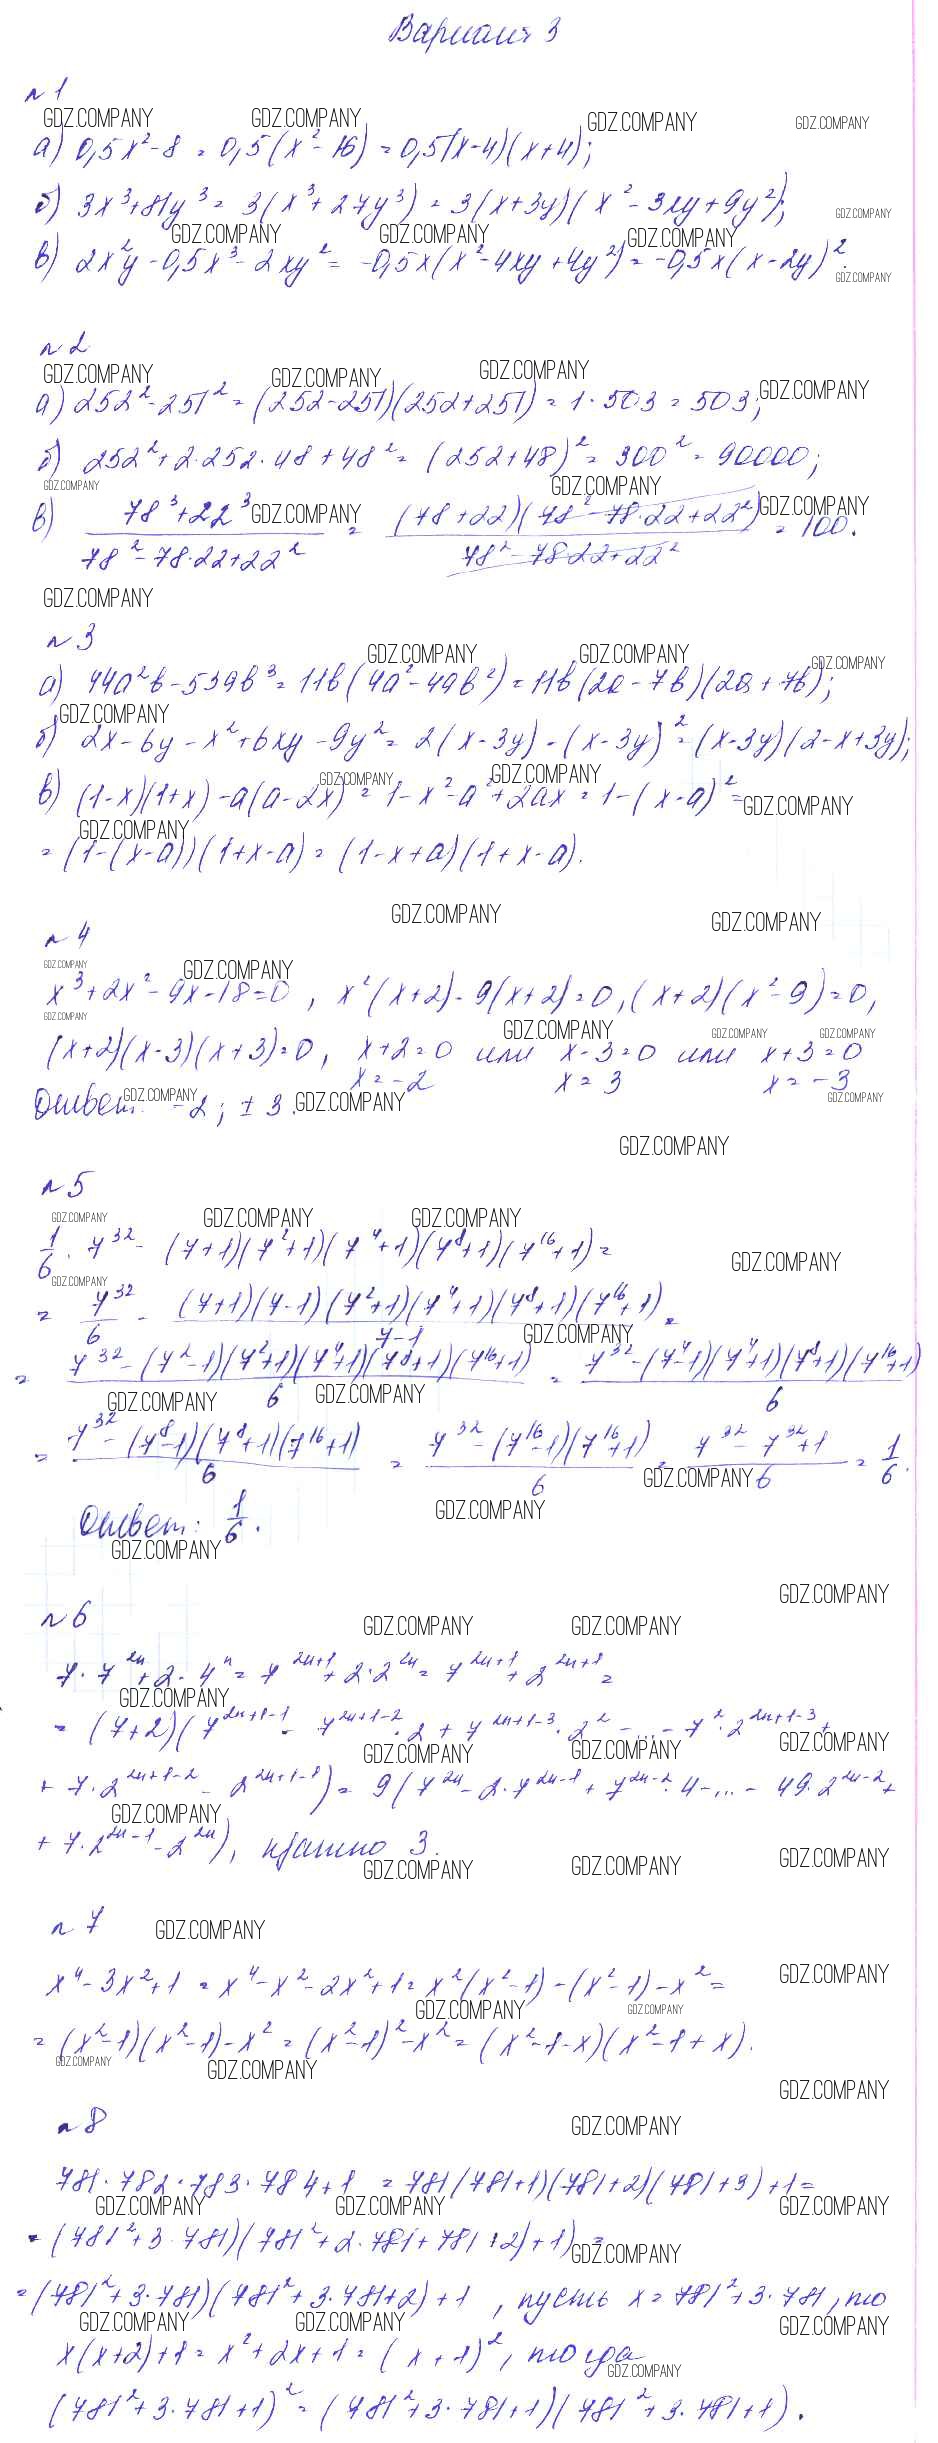 Вариант 3
№1
GDZ.COMPANY GDZ.COMPANY GDZ.COMPANY GDZ.COMPANY
а) 0,5x² - 8 = 0,5(x² - 16) = 0,5(x-4)(x+4);
б) 3x³ + 81y³ = 3(x³ + 27y³) = 3(x+3y)(x² - 3xy + 9y²);
GDZ.COMPANY
GDZ.COMPANY GDZ.COMPANY GDZ.COMPANY
в) 2x²y - 0,5x³ - 2xy² = -0,5x(x² - 4xy + 4y²) = -0,5x(x-2y)².
GDZ.COMPANY
№2
GDZ.COMPANY GDZ.COMPANY GDZ.COMPANY GDZ.COMPANY
а) 252² - 251² = (252-251)(252+251) = 1·503 = 503;
б) 252² + 2·252·48 + 48² = (252+48)² = 300² = 90000;
GDZ.COMPANY GDZ.COMPANY
в) (78³+22³)/(78²-78·22+22²) = (78+22)(78²-78·22+22²)/(78²-78·22+22²) = 100.
GDZ.COMPANY GDZ.COMPANY
GDZ.COMPANY
№3
GDZ.COMPANY GDZ.COMPANY GDZ.COMPANY
а) 44a²b - 539b³ = 11b(4a² - 49b²) = 11b(2a-7b)(2a+7b);
GDZ.COMPANY
б) 2x - 6y - x² + 6xy - 9y² = 2(x-3y) - (x-3y)² = (x-3y)(2-x+3y);
GDZ.COMPANY GDZ.COMPANY
в) (1-x)(1+x) - a(a-2x) = 1 - x² - a² + 2ax = 1 - (x-a)² =
GDZ.COMPANY
GDZ.COMPANY
= (1-(x-a))(1+x-a) = (1-x+a)(1+x-a).
GDZ.COMPANY GDZ.COMPANY
№4
GDZ.COMPANY GDZ.COMPANY
x³ + 2x² - 9x - 18 = 0, x²(x+2) - 9(x+2) = 0, (x+2)(x²-9) = 0,
GDZ.COMPANY GDZ.COMPANY GDZ.COMPANY GDZ.COMPANY
(x+2)(x-3)(x+3) = 0, x+2=0 или x-3=0 или x+3=0
x = -2 x = 3 x = -3
GDZ.COMPANY GDZ.COMPANY GDZ.COMPANY
Ответ: -2; ±3.
GDZ.COMPANY
№5
GDZ.COMPANY GDZ.COMPANY GDZ.COMPANY
1/6 · 7³² - (7+1)(7²+1)(7⁴+1)(7⁸+1)(7¹⁶+1) =
GDZ.COMPANY
GDZ.COMPANY
= 7³²/6 - (7+1)(7-1)(7²+1)(7⁴+1)(7⁸+1)(7¹⁶+1)/(7-1) =
GDZ.COMPANY
= (7³² - (7²-1)(7²+1)(7⁴+1)(7⁸+1)(7¹⁶+1))/6 = (7³² - (7⁴-1)(7⁴+1)(7⁸+1)(7¹⁶+1))/6
GDZ.COMPANY GDZ.COMPANY
= (7³² - (7⁸-1)(7⁸+1)(7¹⁶+1))/6 = (7³² - (7¹⁶-1)(7¹⁶+1))/6 = (7³² - 7³² + 1)/6 = 1/6.
GDZ.COMPANY
GDZ.COMPANY
Ответ: 1/6.
GDZ.COMPANY
GDZ.COMPANY
№6
GDZ.COMPANY GDZ.COMPANY
7·7²ⁿ + 2·4ⁿ = 7²ⁿ⁺¹ + 2·2²ⁿ = 7²ⁿ⁺¹ + 2²ⁿ⁺¹ =
GDZ.COMPANY
= (7+2)(7²ⁿ⁺¹⁻¹ - 7²ⁿ⁺¹⁻²·2 + 7²ⁿ⁺¹⁻³·2² - ... - 7²·2²ⁿ⁺¹⁻³ +
GDZ.COMPANY GDZ.COMPANY GDZ.COMPANY
+ 7·2²ⁿ⁺¹⁻² - 2²ⁿ⁺¹⁻¹) = 9(7²ⁿ - 2·7²ⁿ⁻¹ + 7²ⁿ⁻²·4 - ... - 49·2²ⁿ⁻² +
GDZ.COMPANY
+ 7·2²ⁿ⁻¹ - 2²ⁿ), кратно 3.
GDZ.COMPANY GDZ.COMPANY GDZ.COMPANY
№7
GDZ.COMPANY
x⁴ - 3x² + 1 = x⁴ - x² - 2x² + 1 = x²(x²-1) - (x²-1) - x² =
GDZ.COMPANY
GDZ.COMPANY GDZ.COMPANY
= (x²-1)(x²-1) - x² = (x²-1)² - x² = (x²-1-x)(x²-1+x).
GDZ.COMPANY GDZ.COMPANY
GDZ.COMPANY
№8
GDZ.COMPANY
781·782·783·784+1 = 781(781+1)(781+2)(781+3)+1 =
GDZ.COMPANY GDZ.COMPANY GDZ.COMPANY
= (781²+3·781)(781²+2·781+781+2)+1) =
GDZ.COMPANY
= (781²+3·781)(781²+3·781+2)+1, пусть x = 781²+3·781, то
GDZ.COMPANY GDZ.COMPANY GDZ.COMPANY
x(x+2)+1 = x²+2x+1 = (x+1)², тогда
GDZ.COMPANY
(781²+3·781+1)² = (781²+3·781+1)(781²+3·781+1).